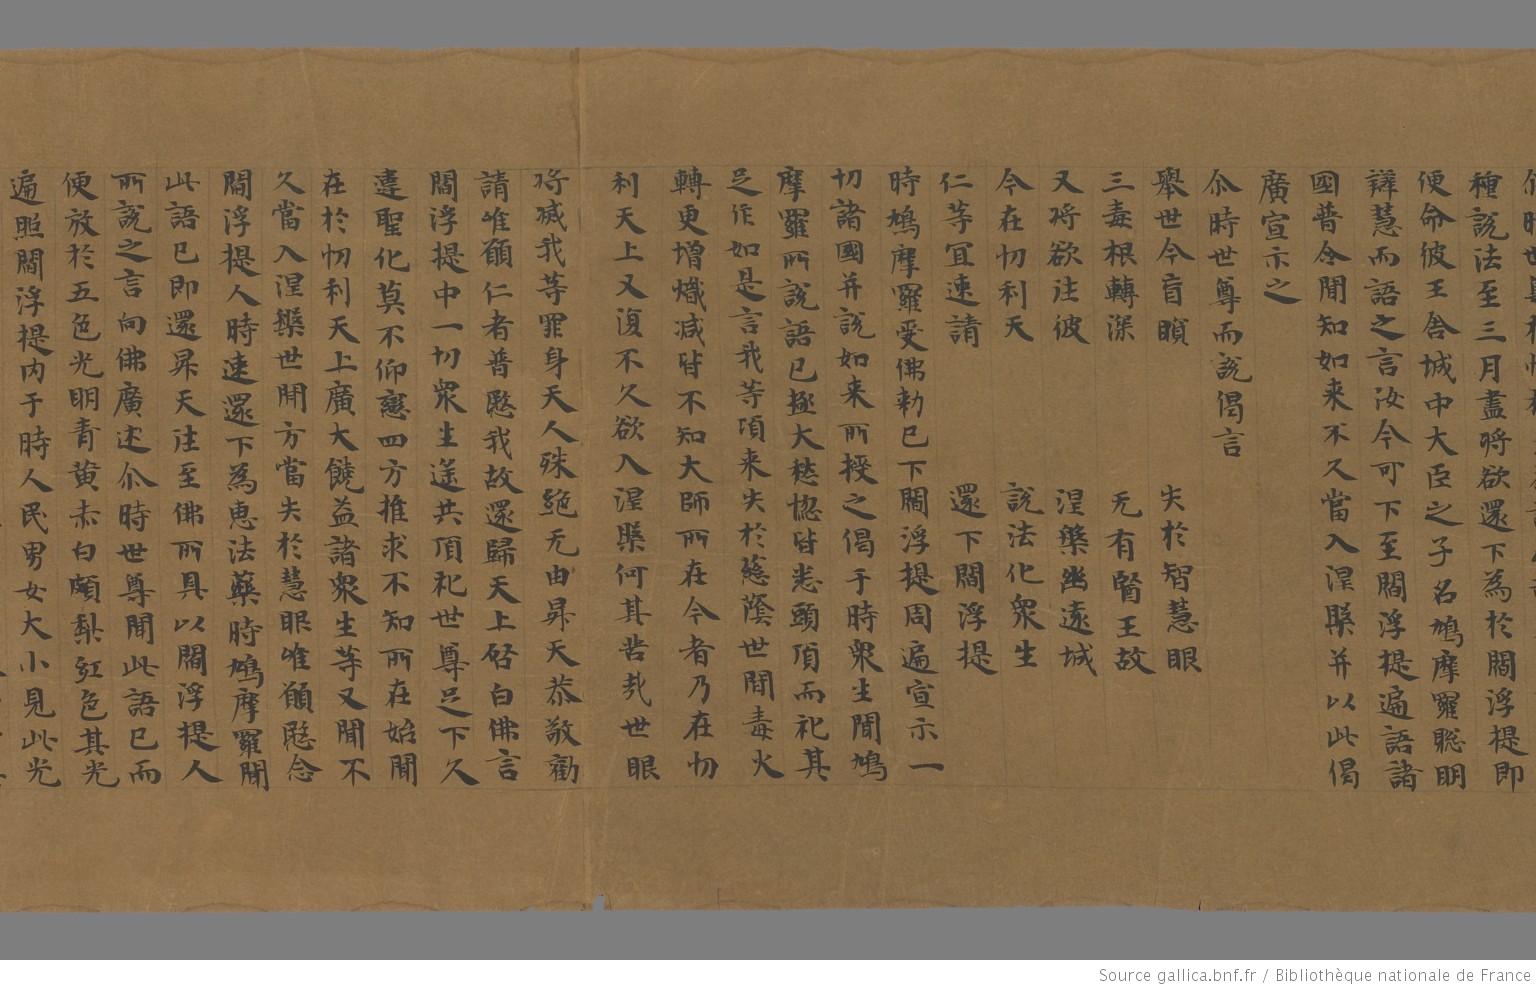 種說法至三月盡將欲還下為於閻浮提即
便命彼王舍城中大臣之子名鳩摩羅聡明
辯慧而語之言汝今可下至閻浮提遍語諸
國普令聞知如来不久當入涅槃并以此偈
廣宣示之
尒時世尊而說偈言
舉世今盲瞑 失於智慧眼
三毒根轉深 无有醫王故
又將欲往彼 涅槃幽遠城
今在忉利天 說法化衆生
仁等宜速請 還下閻浮提
時鳩摩羅受佛勑已下閻浮提周遍宣示一
切諸國并說如来所授之偈于時衆生聞鳩
摩羅所說語已極大愁惱皆悉頭頂而礼其
足作如是言我等頃来失於慈蔭世間毒火
轉更增熾減皆不知大師所在今者乃在忉
利天上又復不久欲入涅槃何其苦哉世眼
將滅我等罪身天人殊絶无由昇天恭敬勸
請唯願仁者普愍我故還歸天上啓白佛言
閻浮提中一切衆生遥共頂礼世尊足下久
違聖化莫不仰戀四方推求不知所在始聞
在於忉利天上廣大饒益諸衆生等又聞不
久當入涅槃世間方當失於慧眼唯願愍念
閻浮提人時速還下為恵法藥時鳩摩羅聞
此語已即還昇天往至佛所具以閻浮提人
所說之言向佛廣述尒時世尊聞此語已而
便放於五色光明青黄赤白頗梨紅色其光
遍照閻浮提内于時人民男女大小見此光
Source gallica.bnf.fr / Bibliothèque nationale de France